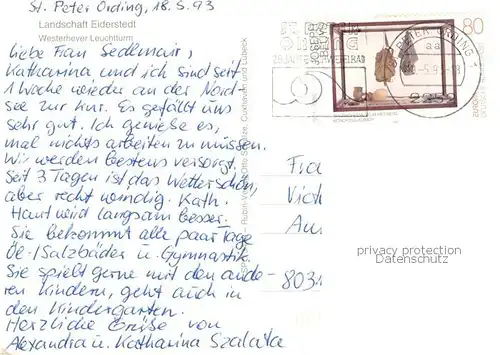 St. Peter Ording, 18.5.93
Landschaft Eiderstedt
Westerhever Leuchtturm
Liebe Frau Sedlmair,
Katharina, und ich sind seit
1 Woche wieder an der Nord-
see zur Kur. Es gefällt uns
sehr gut. Ich genieße es,
mal nichts arbeiten zu müssen.
Wir werden bestens versorgt.
Seit 3 Tagen ist das Wetter schön,
aber recht windig. Kath.
Haut wird langsam besser.
Sie bekommt alle paar Tage
Öl-/Salzbäder u. Gymnastik.
Sie spielt gerne mit den ande-
ren Kindern, geht auch in
den Kindergarten.
Herzliche Grüße von
Alexandra u. Katharina Szalata
80
JOSEPH BEUYS
PETER-ORDING 1
aa
-5.93-18
Cuxhaven und Lübeck
Fra
Vich
Au
803
privacy protection
Datenschutz